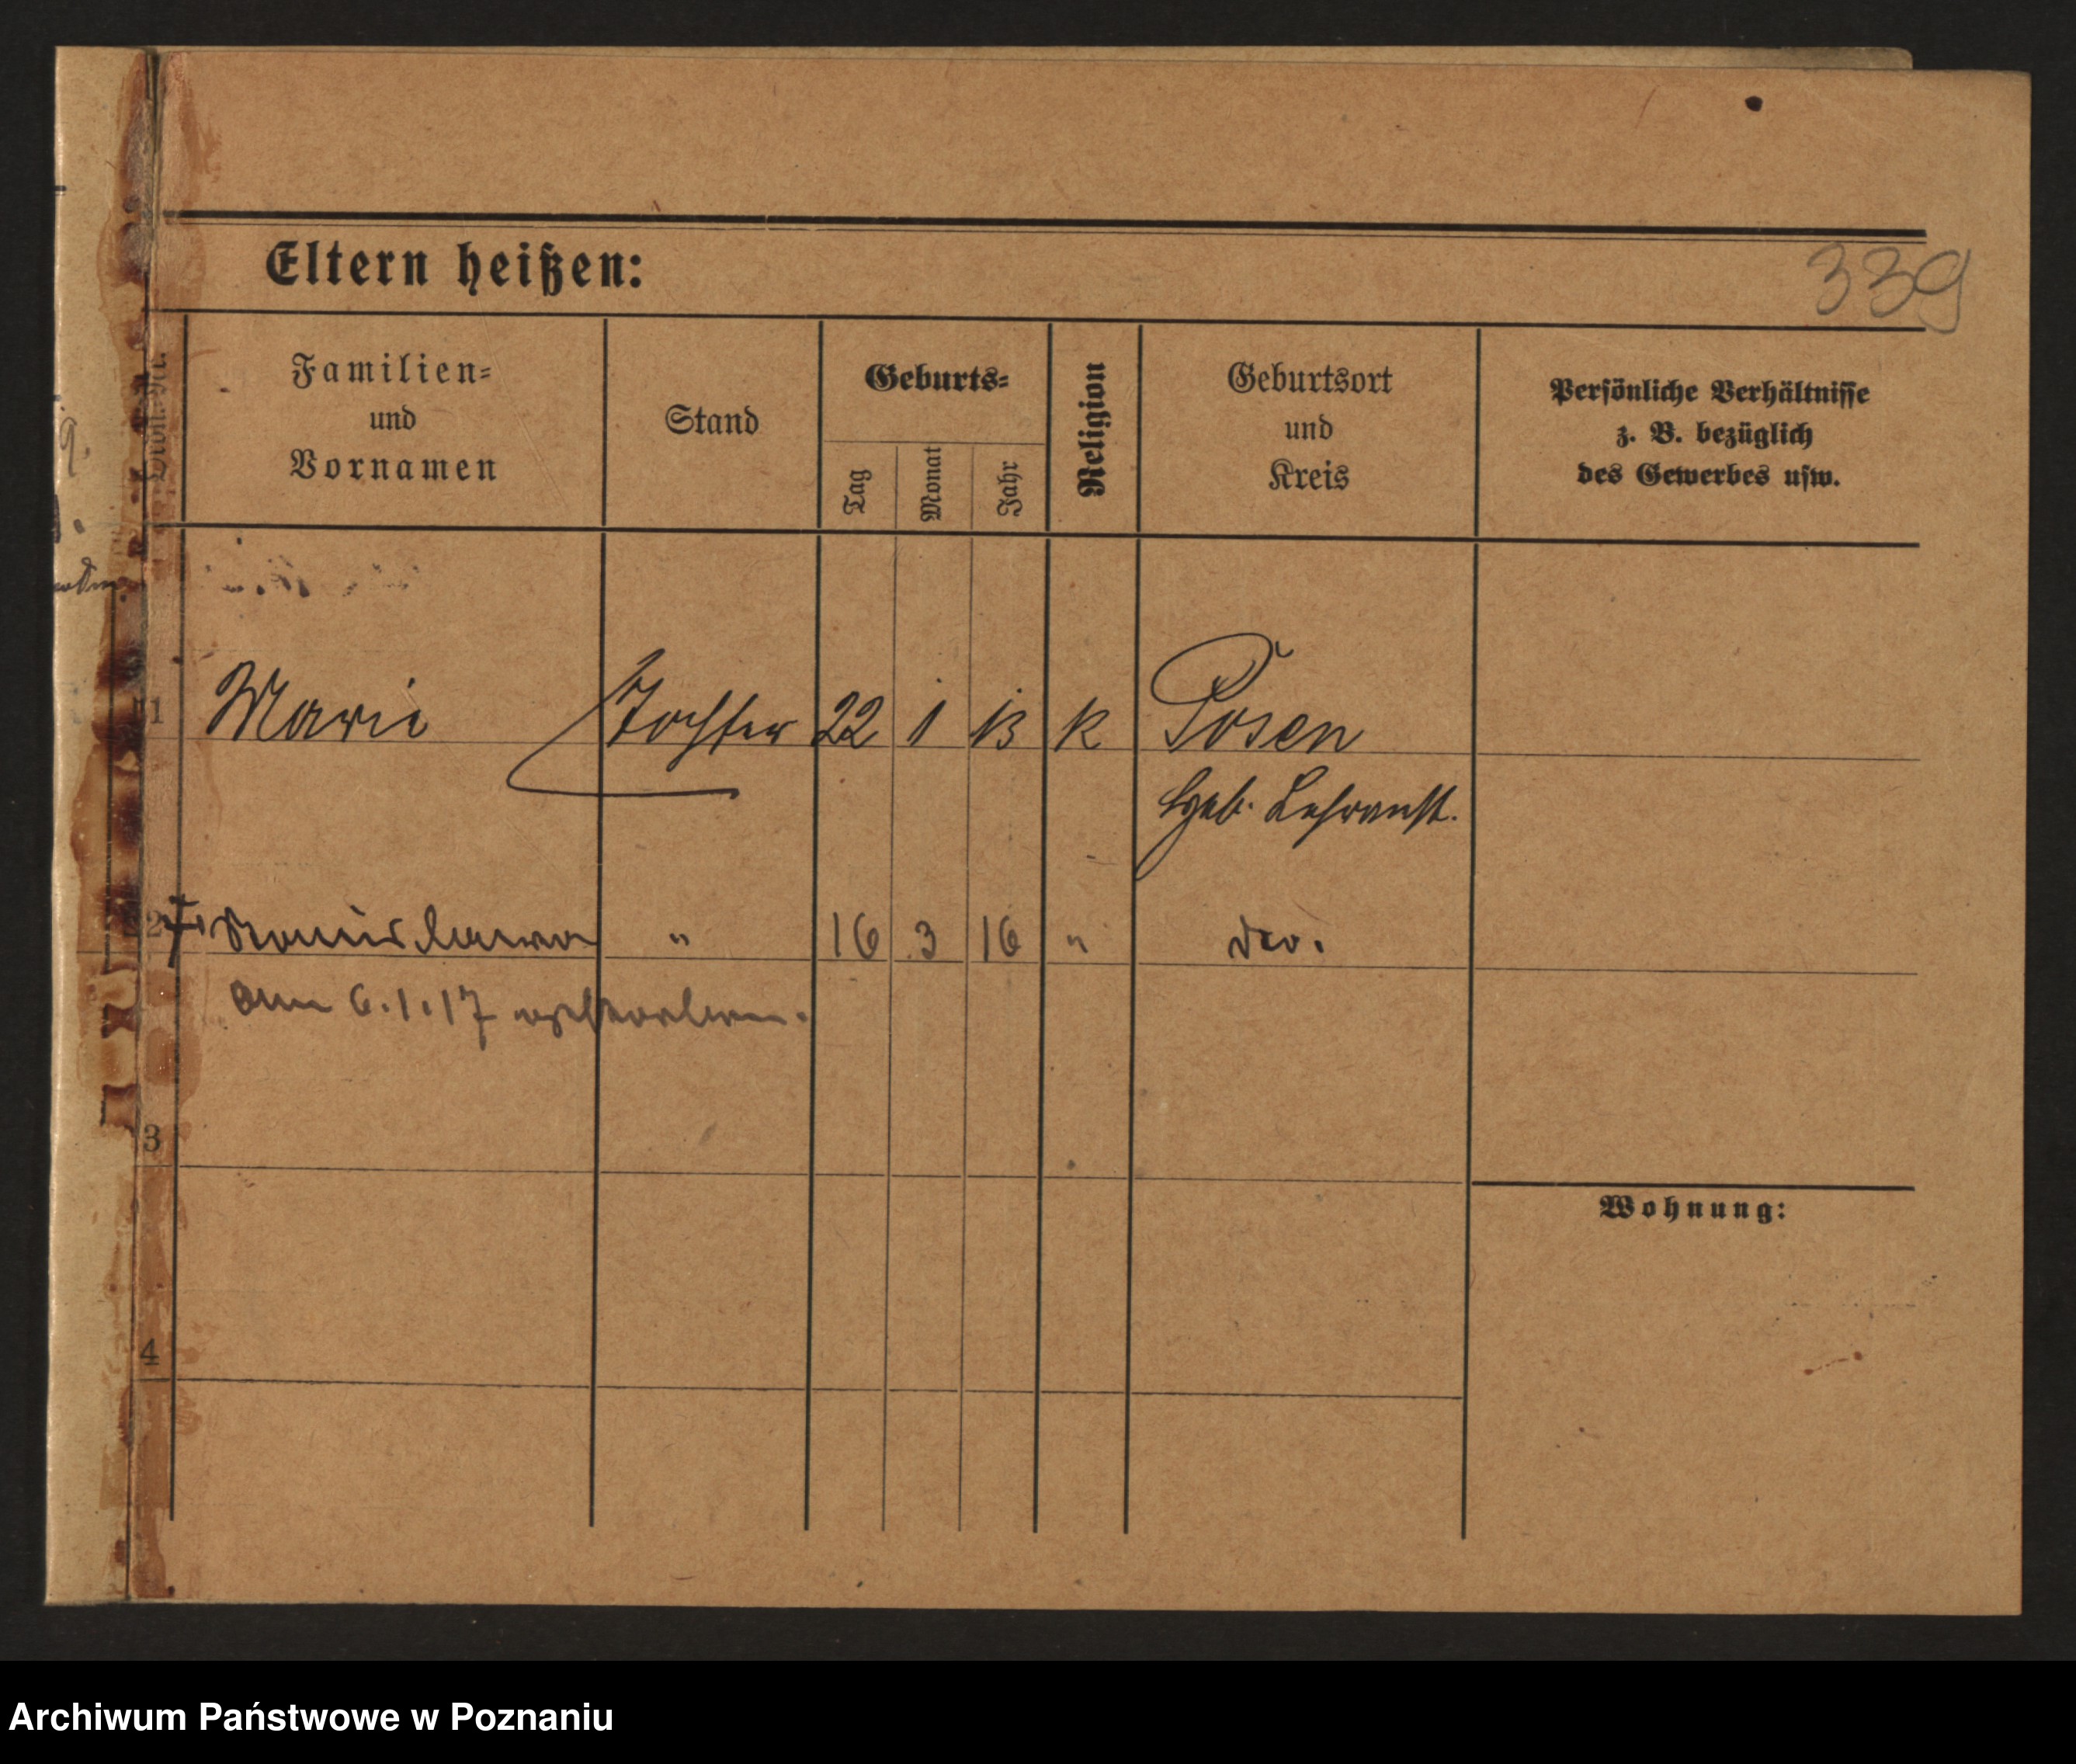 Eltern heißen:
339
Familien-
und
Vornamen
Stand
Geburts-
Tag
Monat
Jahr
Religion
Geburtsort
und
Kreis
Persönliche Verhältnisse
z. B. bezüglich
des Gewerbes usw.
1 Marie Tochter 22 1 13 k Posen
Hgeb. Lehranst.
2 † " 16 3 16 " do.
am 6.1.17 gestorben.
3
Wohnung:
4
Archiwum Państwowe w Poznaniu